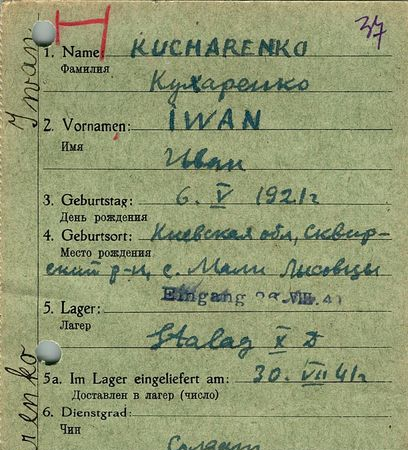 37
1. Name: KUCHARENKO
Фамилия Кухаренко
2. Vornamen: IWAN
Имя Иван
3. Geburtstag: 6. V 1921г
День рождения
4. Geburtsort: Киевская обл, Сквир-
Место рождения
ский р-н, с. Мали Лысовцы
Eingang VIII. 41
5. Lager:
Лагер Stalag X D
5a. Im Lager eingeliefert am: 30. VII 41г
Доставлен в лагер (число)
6. Dienstgrad:
Чин Солдат
Iwan
renko